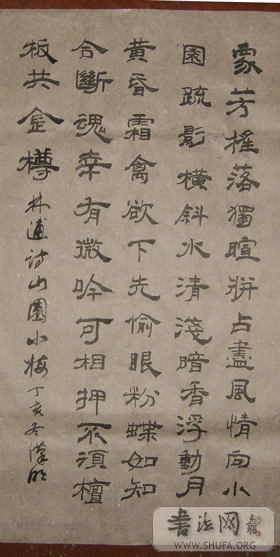 眾芳搖落獨暄妍占盡風情向小
園疏影橫斜水清淺暗香浮動月
黃昏霜禽欲下先偷眼粉蝶如知
合斷魂幸有微吟可相狎不須檀
板共金樽 林逋詩山園小梅 丁亥冬漢明
書法网
WWW.SHUFA.ORG